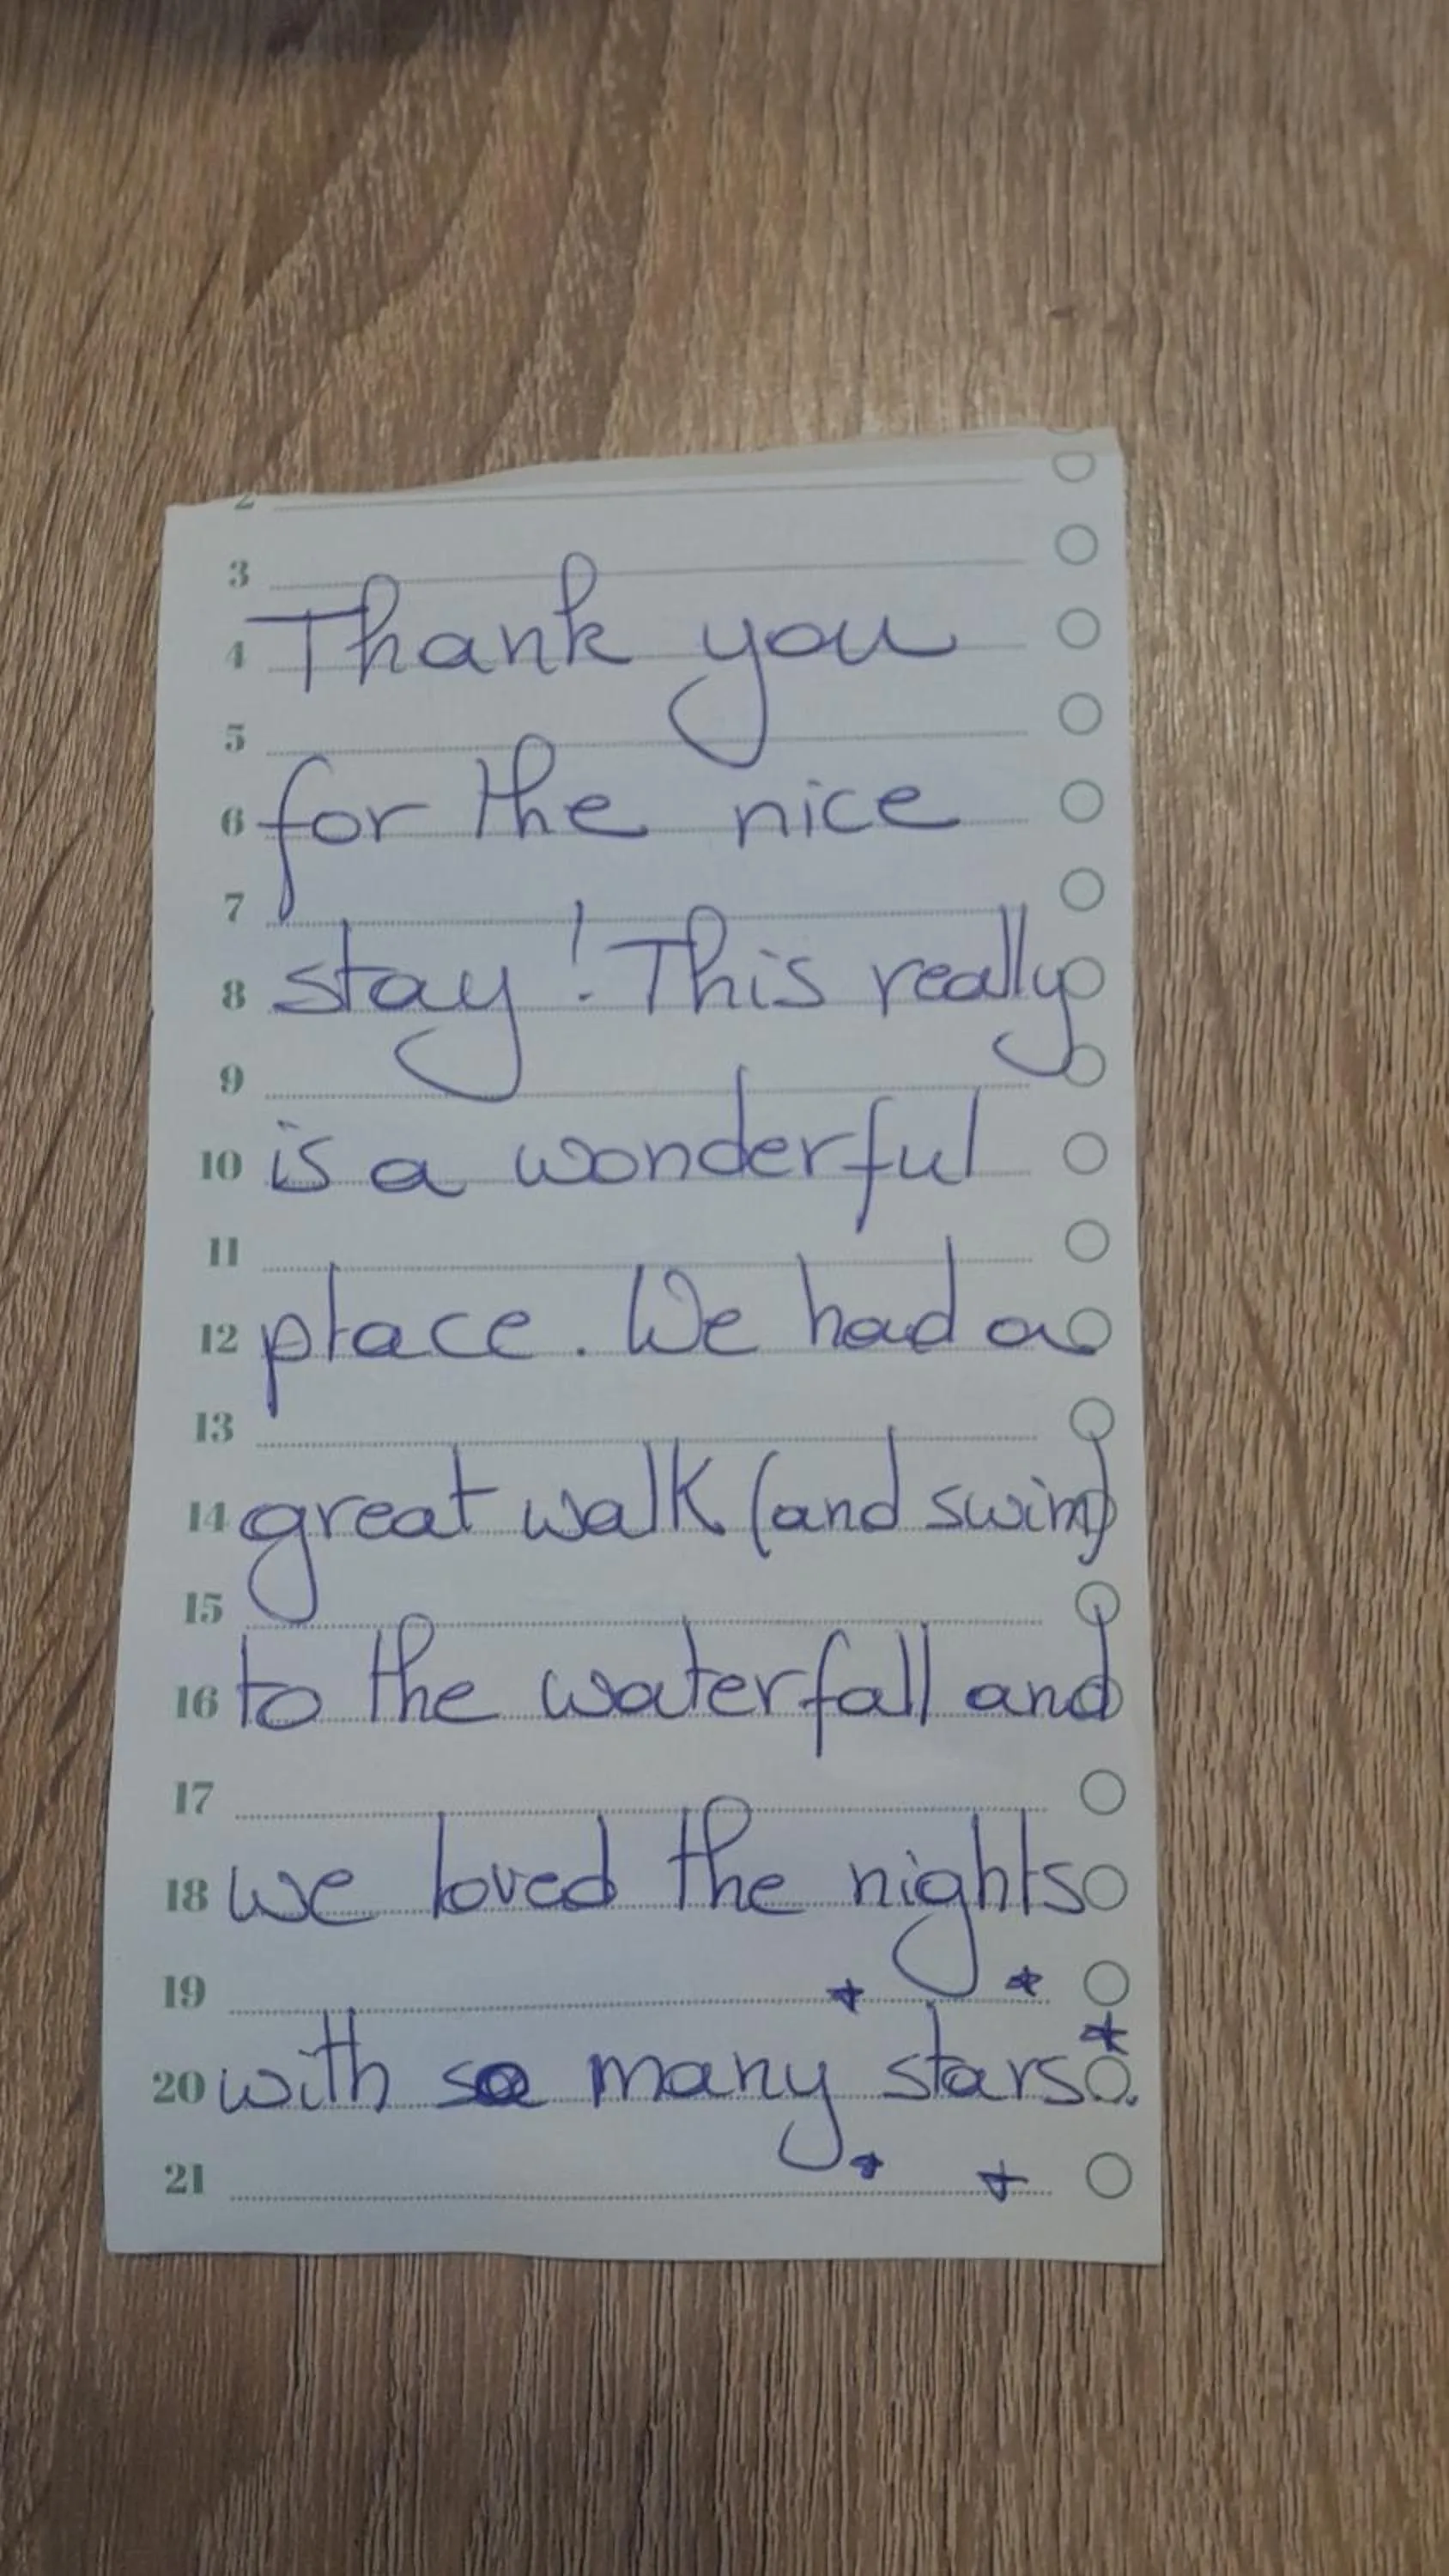 2
3
4 Thank you
5
6 for the nice
7
8 stay! This really
9
10 is a wonderful
11
12 place. We had a
13
14 great walk (and swim)
15
16 to the waterfall and
17
18 we loved the nights
19
20 with so many stars.
21